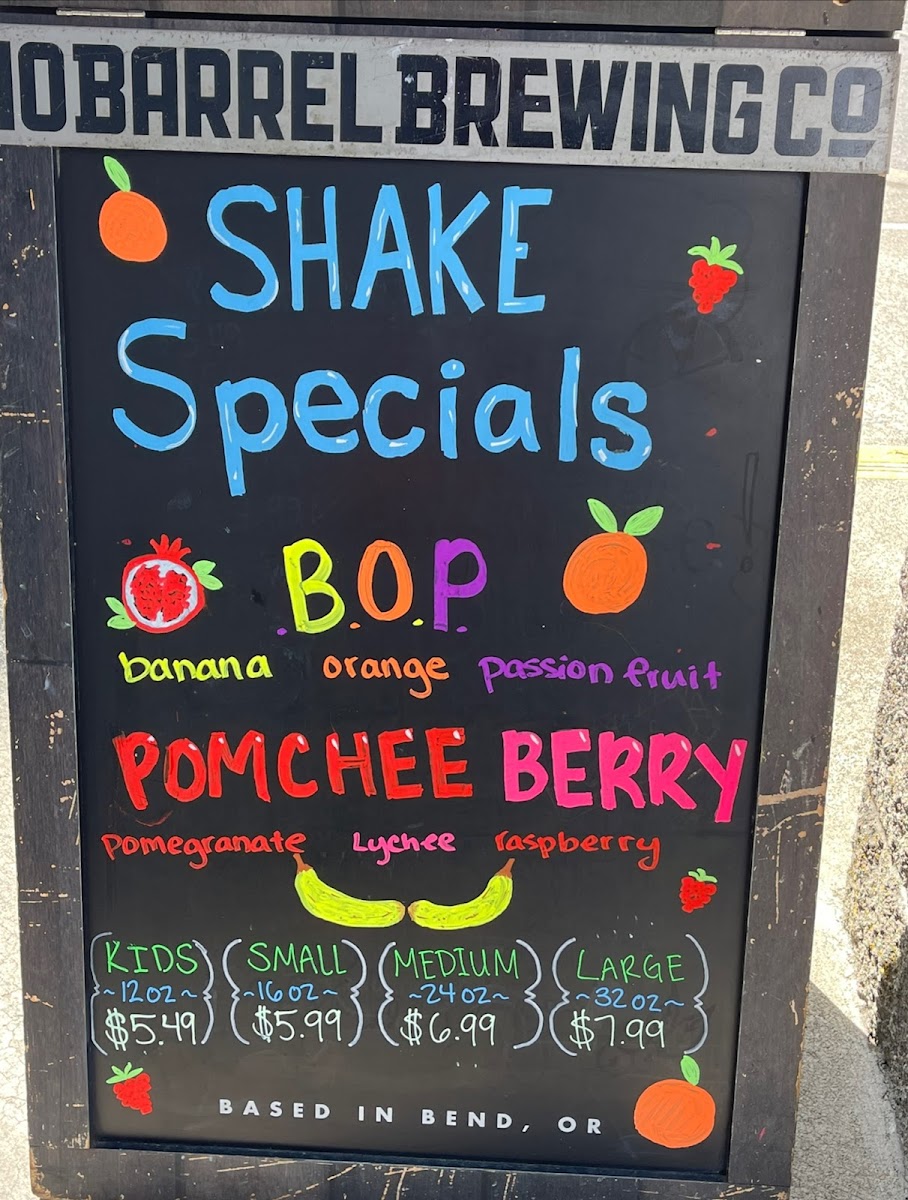 OBARREL BREWING CO
SHAKE
Specials
B.O.P.
banana orange passion fruit
POMCHEE BERRY
pomegranate Lychee raspberry
KIDS SMALL MEDIUM LARGE
~12oz~ ~16oz~ ~24oz~ ~32oz~
$5.49 $5.99 $6.99 $7.99
BASED IN BEND, OR